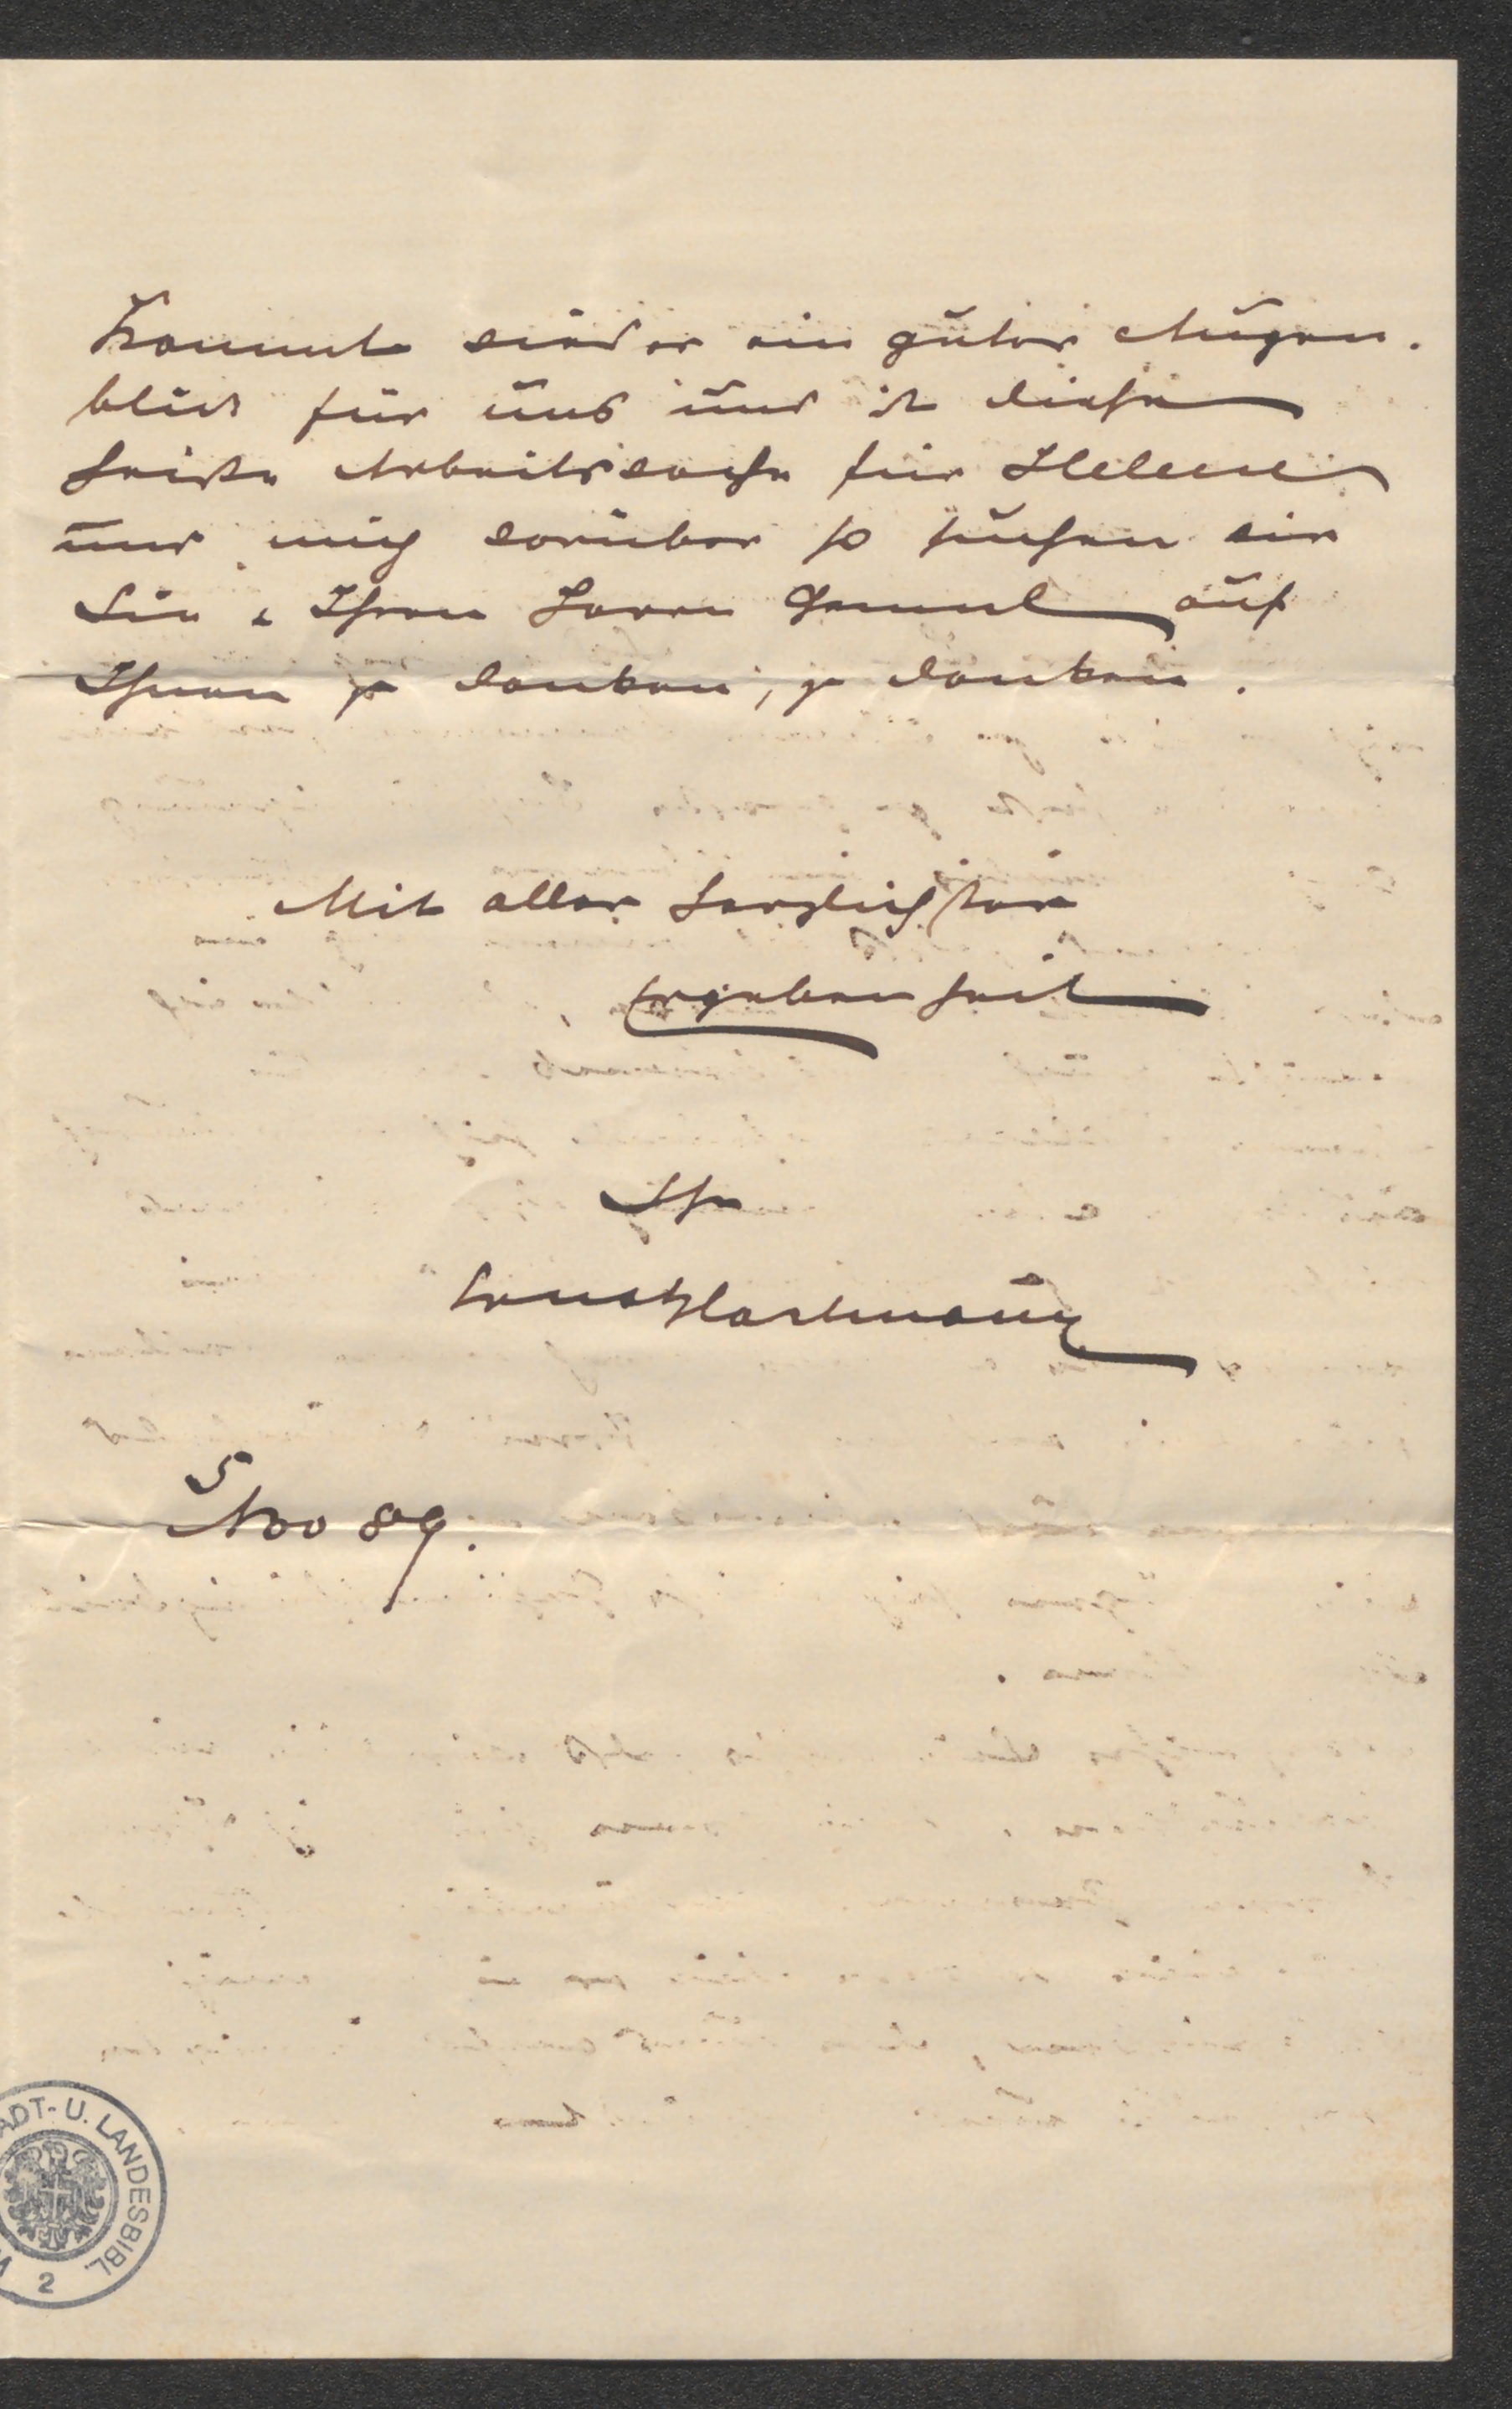 Kommt wieder ein guter Augen-
blick für uns und ist diese
heiße Arbeitswoche für Helene
und mich vorüber so suchen wir
Sie & Ihren Herrn Gemal auf
Ihnen zu danken, zu danken.
Mit aller herzlichster
Ergebenheit
Ihr
Ernst Hartmann
5
Nov 89.
ADT- U. LANDESBIBL.
2